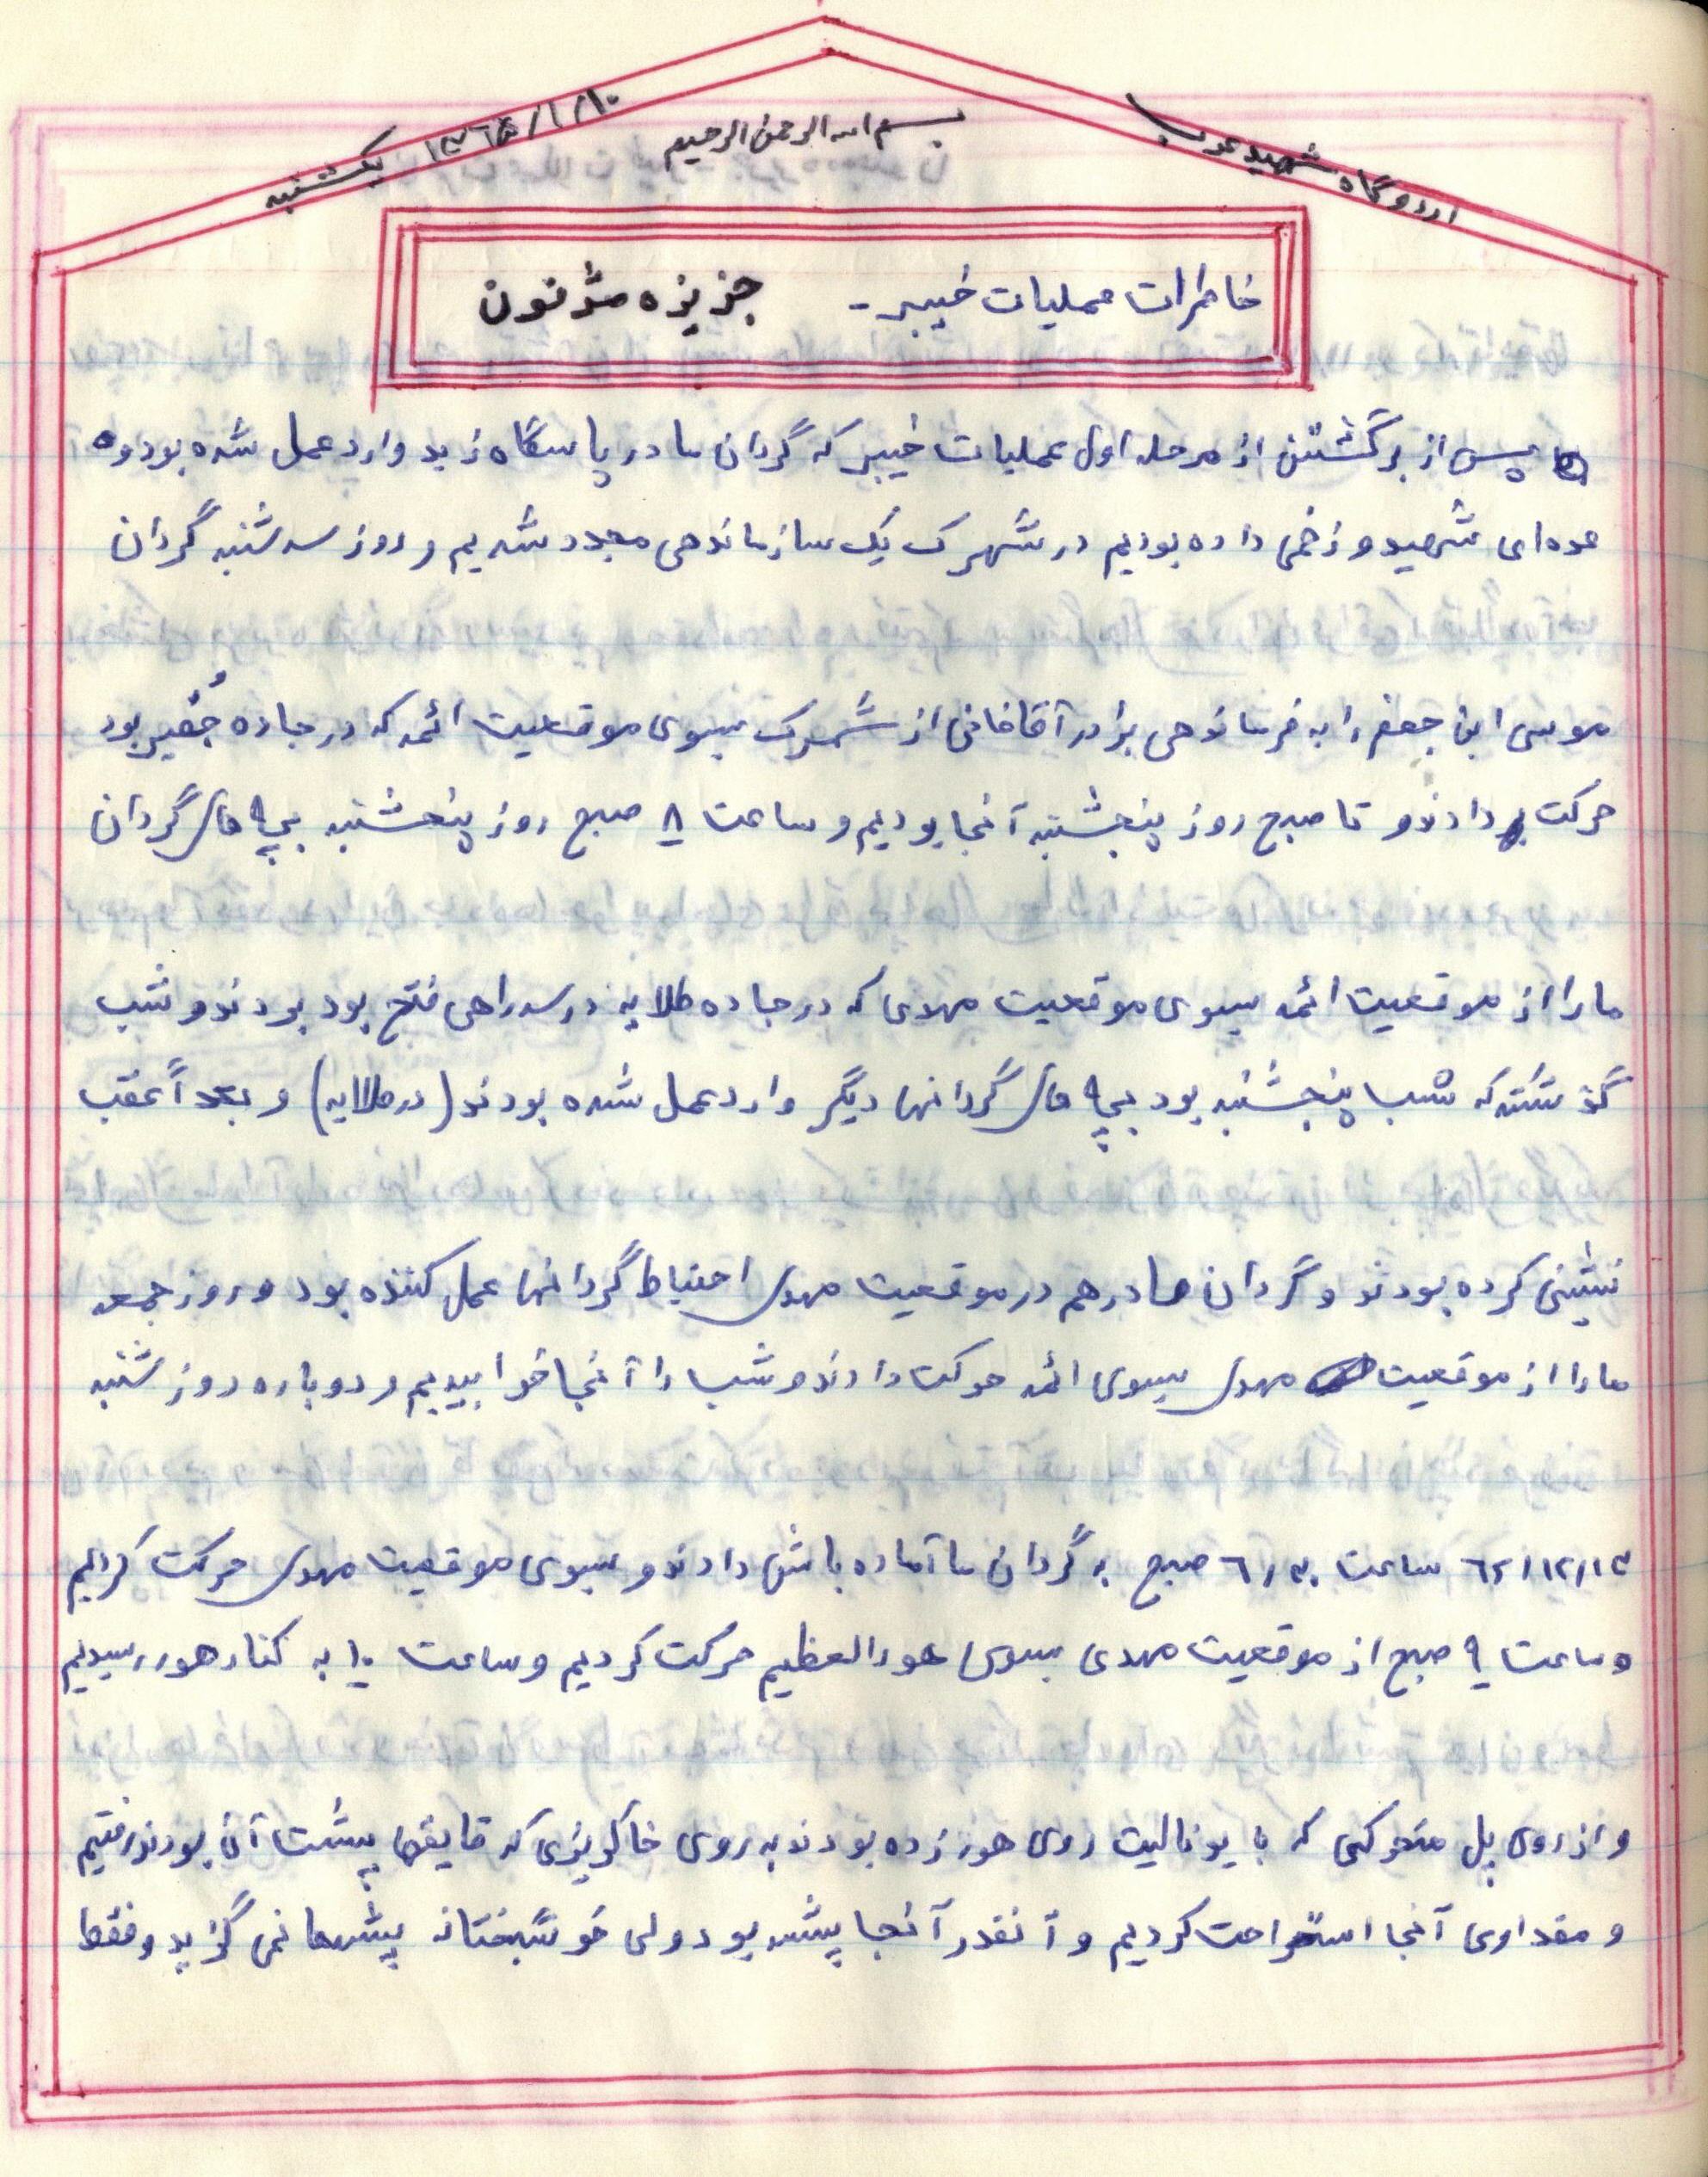 بسم الله الرحمن الرحیم
اردوگاه شهید عرب
یکشنبه ۱۳۶۵/۱/۱۰
خاطرات عملیات خیبر - جزیره مژنون
پس از برگشتن از مرحله اول عملیات خیبر که گردان ما در پاسگاه زید وارد عمل شده بود و
عده‌ای شهید و زخمی داده بودیم در شهرک یک سازماندهی مجدد شدیم و روز سه شنبه گردان
موسی ابن جعفر را به فرماندهی برادر آقاخانی از شهرک بسوی موقعیت ائمه که در جاده جُفیر بود
حرکت دادند و تا صبح روز پنجشنبه آنجا بودیم و ساعت ۸ صبح روز پنجشنبه بچه های گردان
ما را از موقعیت ائمه بسوی موقعیت مهدی که در جاده طلایه در سه راهی فتح بود بردند و شب
گذشته که شب پنجشنبه بود بچه های گردانها دیگر وارد عمل شده بودند (در طلایه) و بعداً عقب
نشینی کرده بودند و گردان ما در هم در موقعیت مهدی احتیاط گردانها عمل کننده بود و روز جمعه
ما را از موقعیت مهدی بسوی ائمه حرکت دادند و شب را آنجا خوابیدیم و دوباره روز شنبه
۶۲/۱۲/۱۳ ساعت ۶/۳۰ صبح به گردان ما آماده باش دادند و بسوی موقعیت مهدی حرکت کردیم
و ساعت ۹ صبح از موقعیت مهدی بسوی هورالعظیم حرکت کردیم و ساعت ۱۰ به کنار هور رسیدیم
و از روی پل متحرکی که با یونالیت روی هور زده بودند به روی خاکریزی که قایقها پشت آن بودند رفتیم
و مقداری آنجا استراحت کردیم و آنقدر آنجا پشه بود ولی خوشبختانه پشه‌ها نمی گزید و فقط